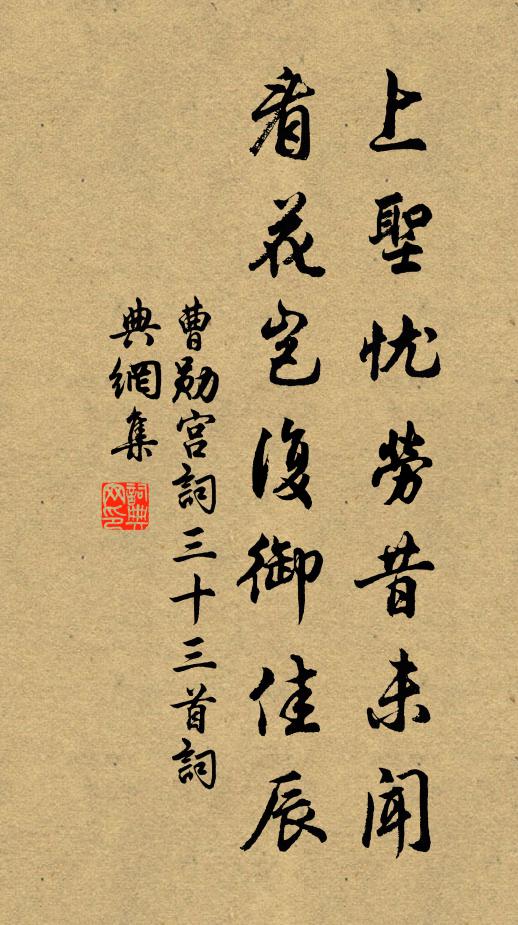 上聖忧勞昔未闻
看花岂復御佳辰
曹勛宫詞三十三首詞
典網集
詞典网印